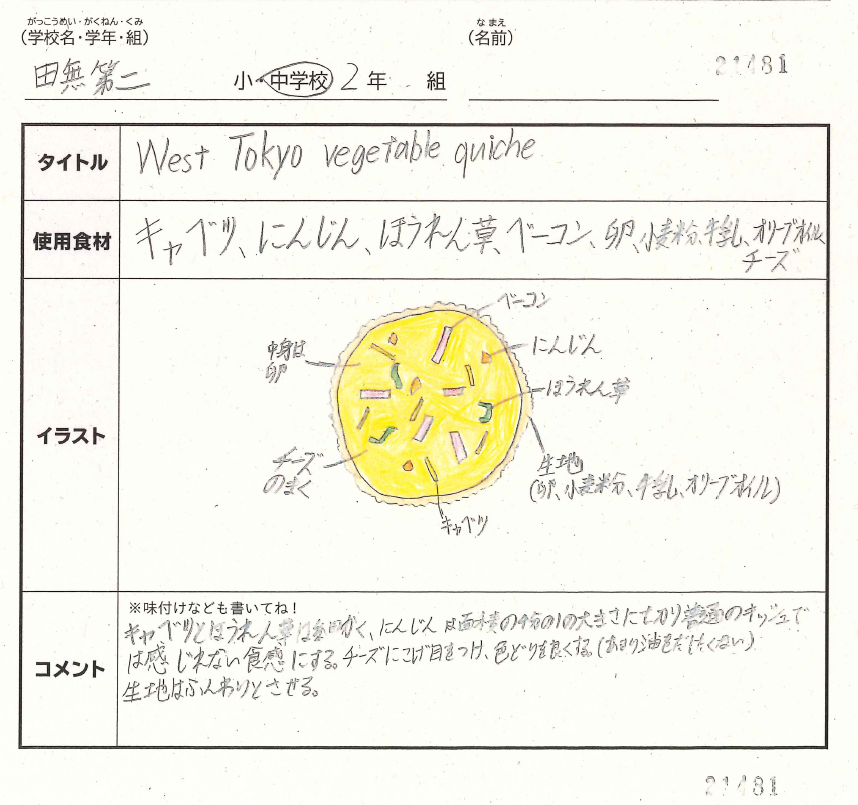 がっこうめい・がくねん・くみ
(学校名・学年・組)
なまえ
(名前)
21481
田無第二 小・中学校 2年 組
タイトル
West Tokyo vegetable quiche
使用食材
キャベツ、にんじん、ほうれん草、ベーコン、卵、小麦粉、牛乳、オリーブオイル、
チーズ
イラスト
ベーコン
にんじん
中身は
卵
ほうれん草
チーズ
のまく
生地
(卵、小麦粉、牛乳、オリーブオイル)
キャベツ
コメント
※味付けなども書いてね!
キャベツとほうれん草は細かく、にんじんは面積の4分の1の大きさに切り普通のキッシュで
は感じれない食感にする。チーズにこげ目をつけ、色どりを良くする。(あまり油をだしたくない)
生地はふんわりとさせる。
21481